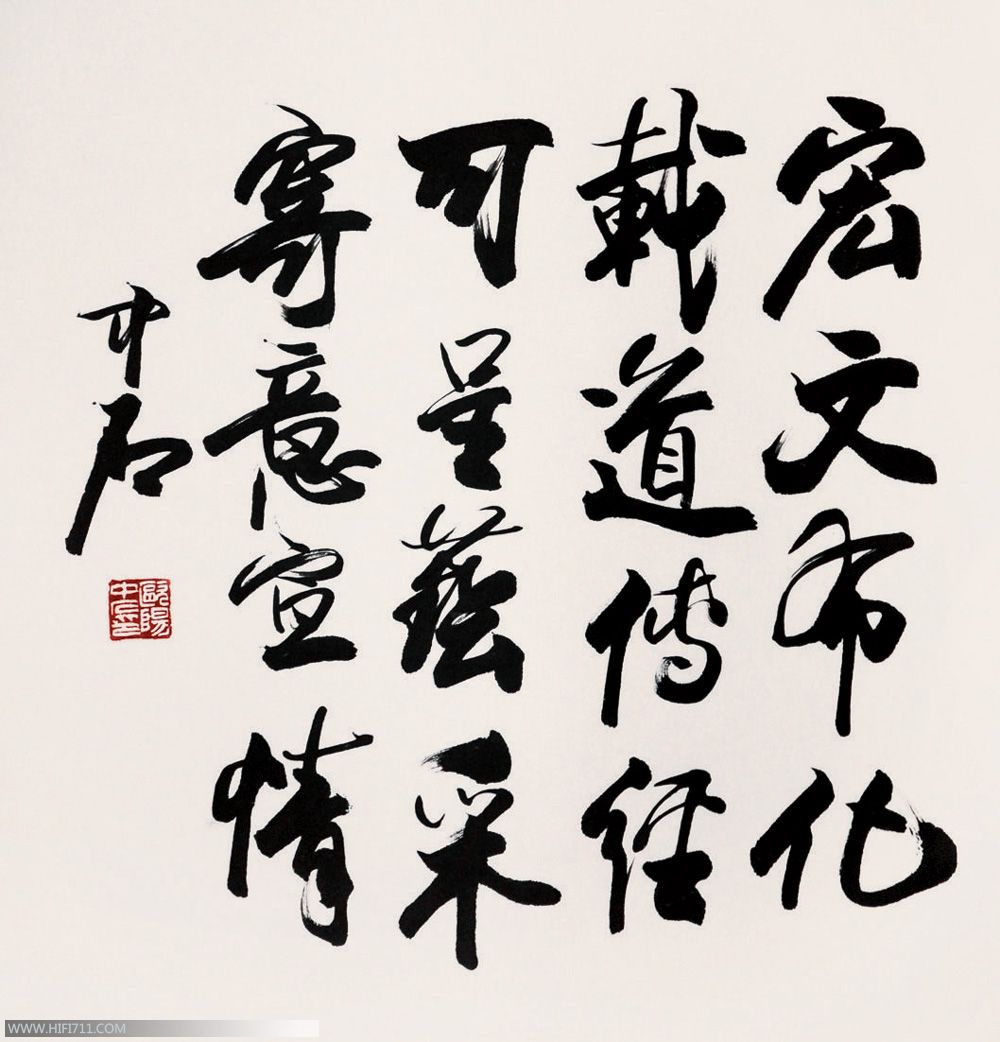 宏文布化
載道傳經
可呈藝采
寄意宣情
中石
歐陽
中石印
WWW.HIFI711.COM